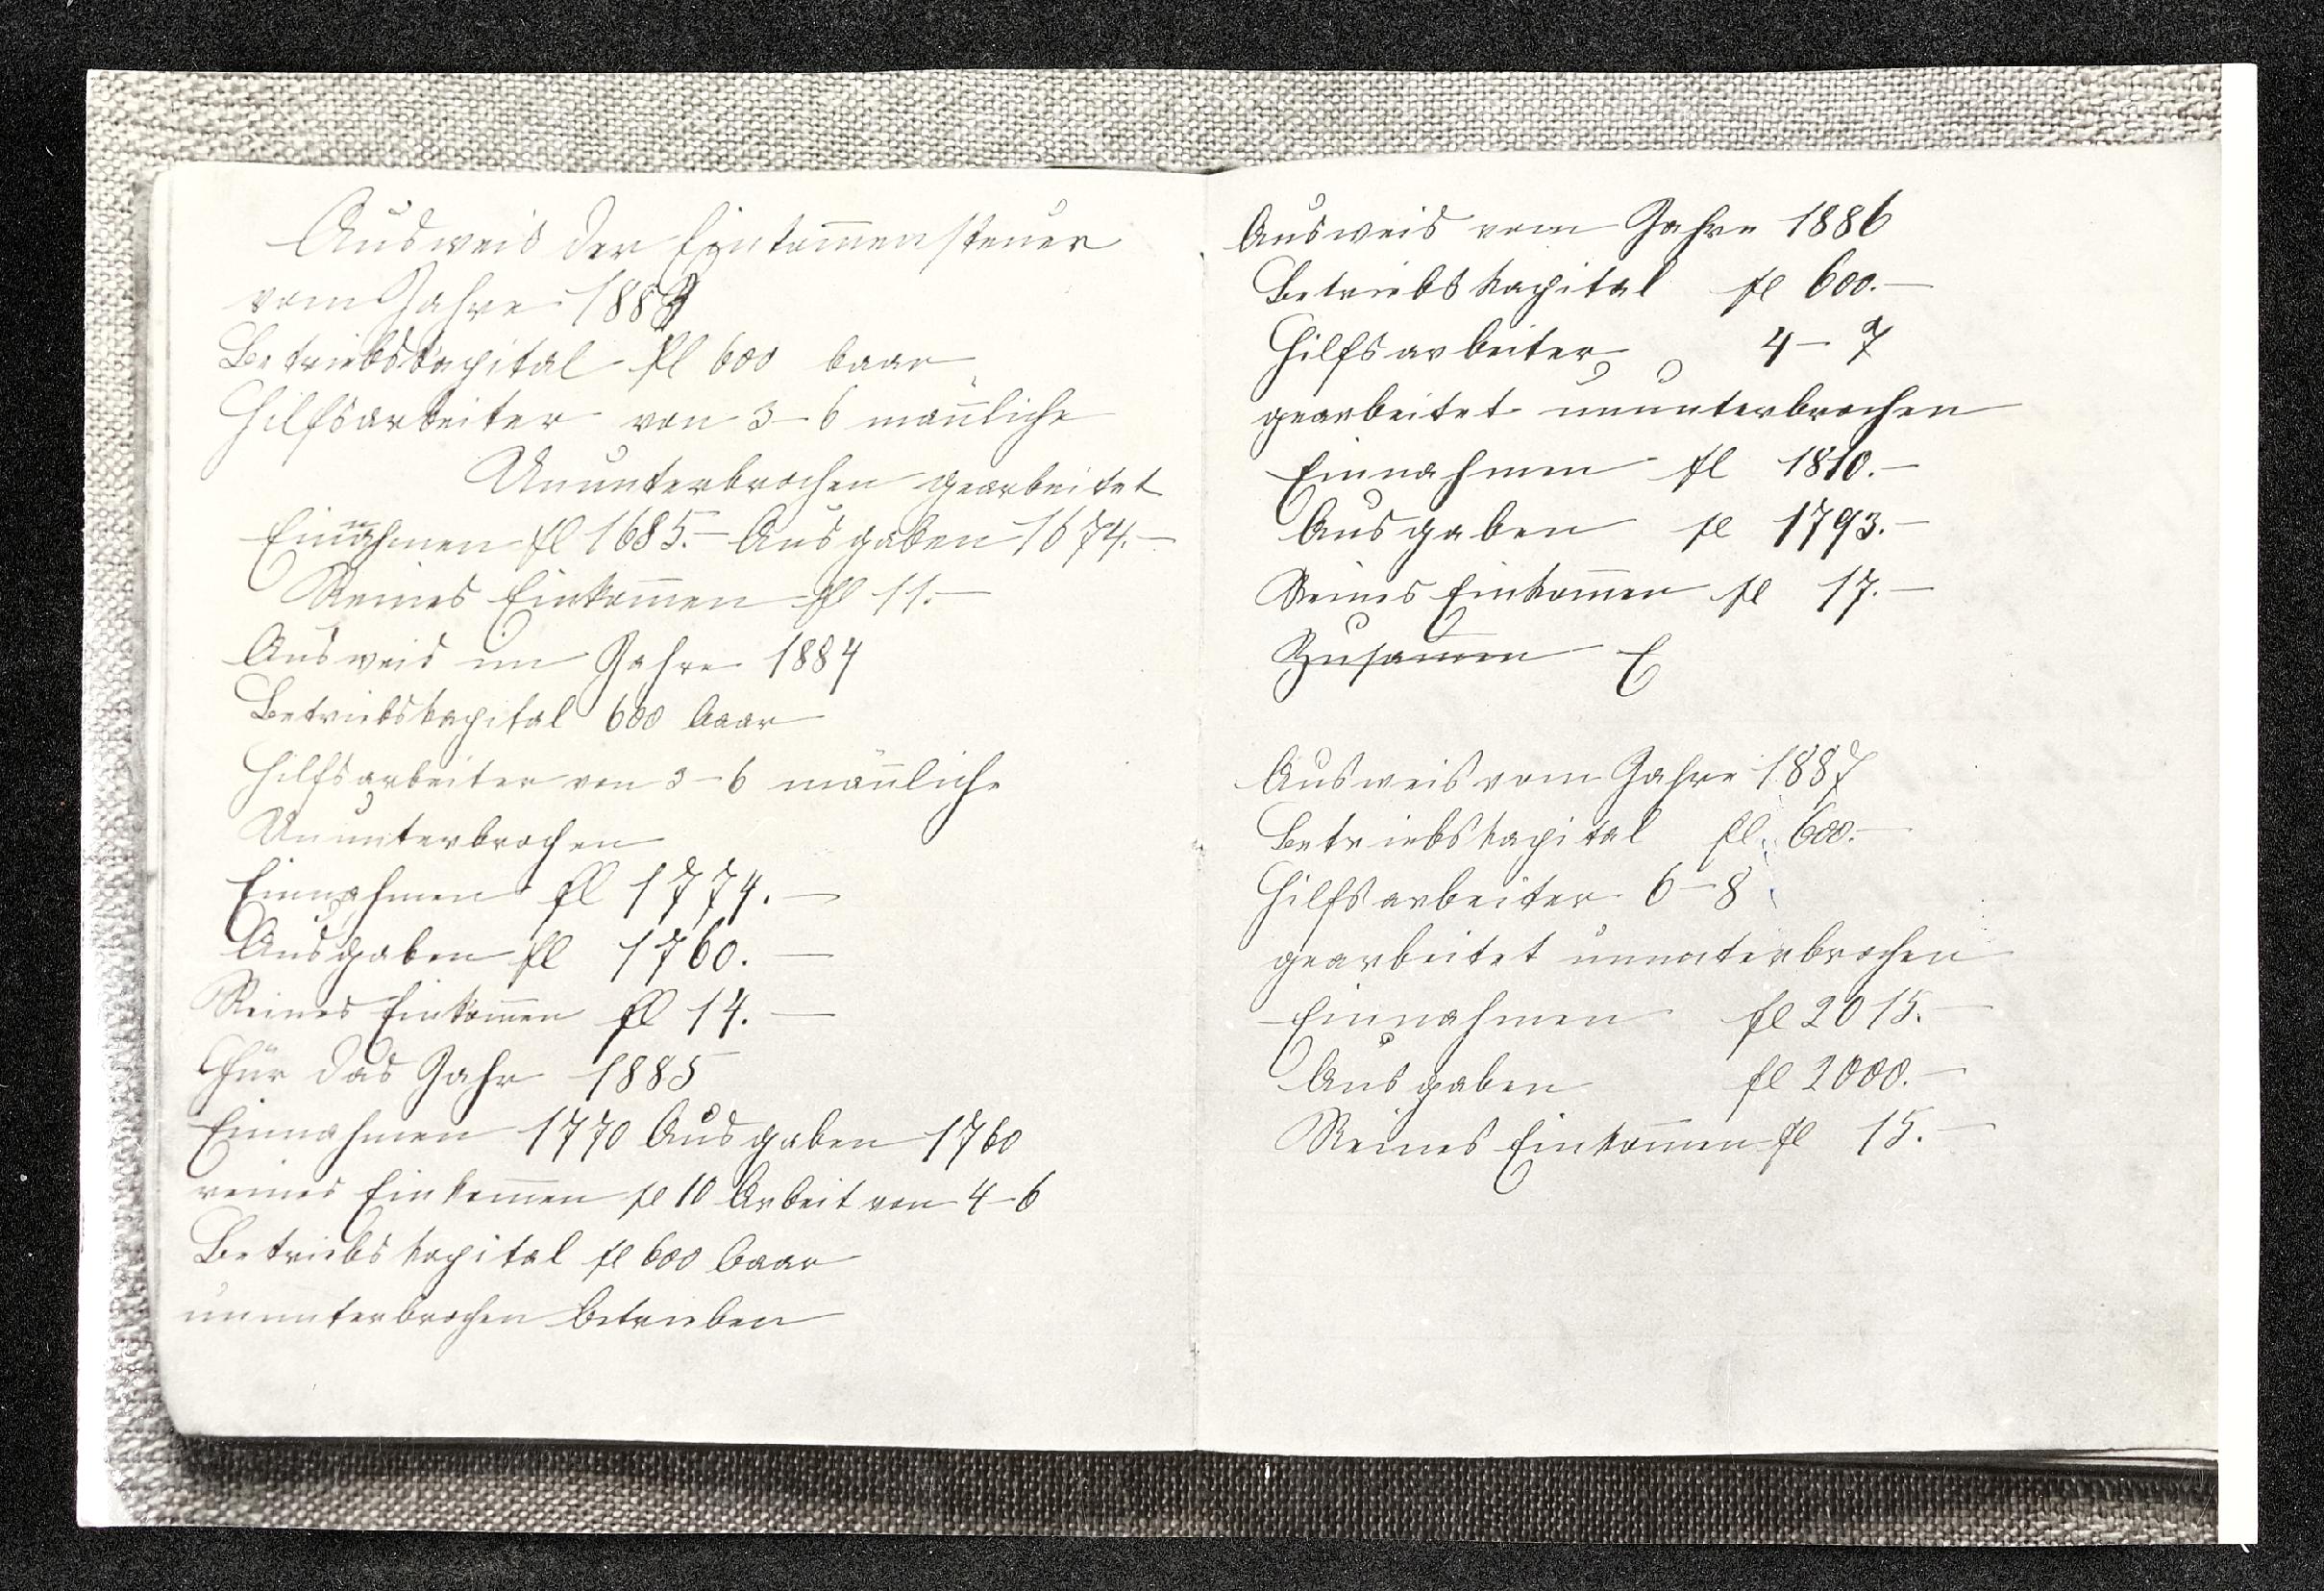 Ausweis der Einkom̄ensteuer
vom Jahre 1883
Betriebskapital fl 600 baar
Hilfsarbeiter von 3–6 mäñliche
Ununterbrochen gearbeitet
Einnahmen fl 1685.– Ausgaben 1674.–
Reines Einkom̄en fl 11.–
Ausweis im Jahre 1884
Betriebskapital 600 baar
Hilfsarbeiter von 3–6 mäñliche
Ununterbrochen
Einnahmen fl 1774.–
Ausgaben fl 1760.–
Reines Einkom̄en fl 14.–
Für das Jahr 1885
Einnahmen 1770 Ausgaben 1760
reines Einkom̄en fl 10 Arbeit von 4–6
Betriebskapital fl 600 baar
ununterbrochen betrieben
Ausweis vom Jahre 1886
Betriebskapital fl 600.–
Hilfsarbeiter 4–7
gearbeitet ununterbrochen
Einnahmen fl 1810.–
Ausgaben fl 1793.–
Reines Einkom̄en fl 17.–
Zusam̄en E
Ausweis vom Jahre 1887
Betriebskapital fl. 600.–
Hilfsarbeiter 6–8
gearbeitet ununterbrochen
Einnahmen fl 2015.–
Ausgaben fl 2000.–
Reines Einkom̄en fl 15.–